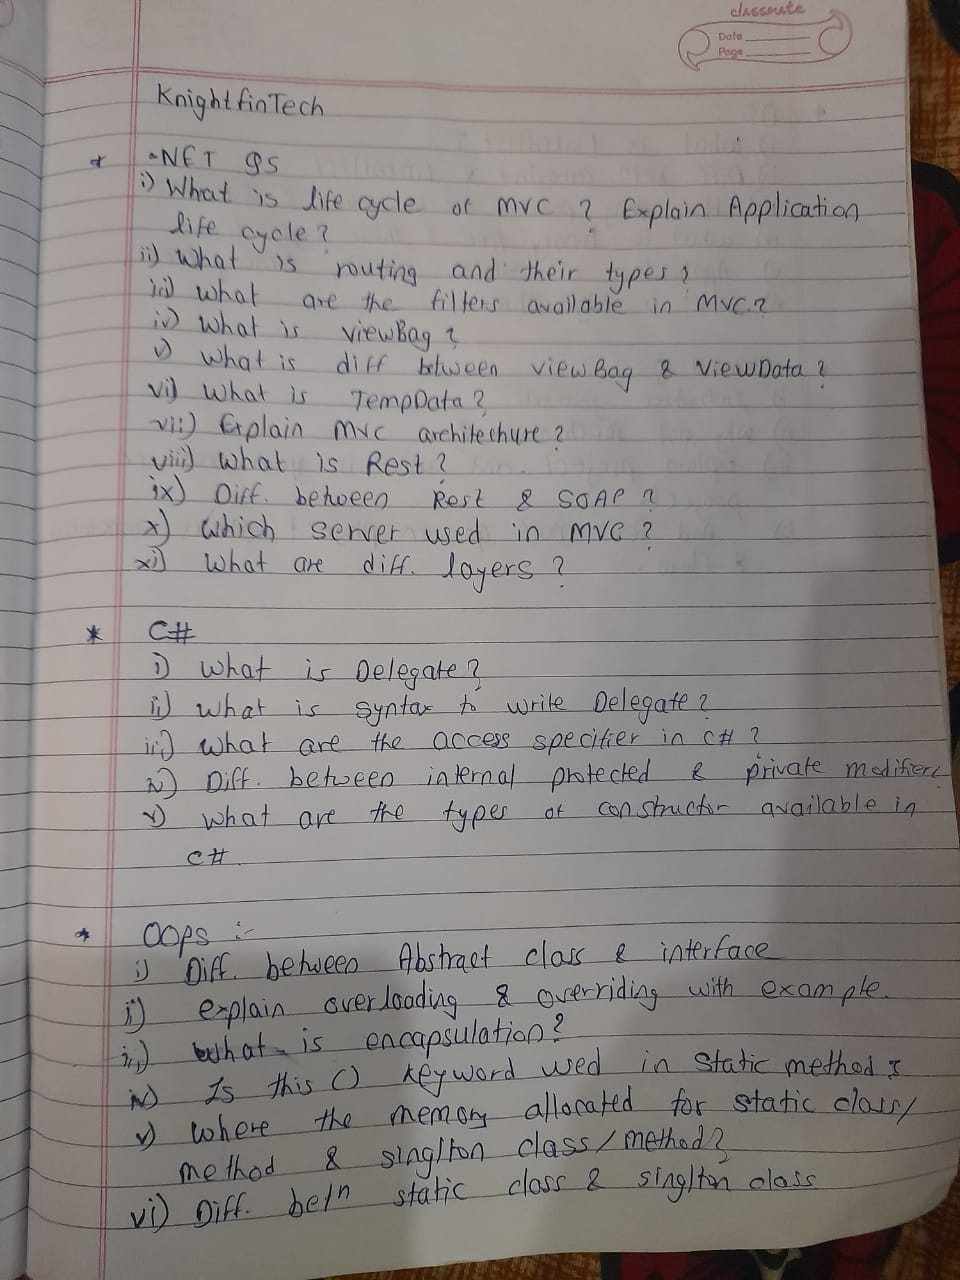 classmate
Date
Page
KnightfinTech
* .NET QS
i) What is life cycle of MVC ? Explain Application
life cycle?
ii) What is routing and their types?
iii) What are the filters available in MVC.?
iv) What is viewBag ?
v) What is diff between viewBag & ViewData ?
vi) What is TempData?
vii) Explain MVC architechure ?
viii) What is Rest ?
ix) Diff. between Rest & SOAP ?
x) which server used in MVC ?
xi) What are diff. layers ?
* C#
i) What is Delegate?
ii) What is syntax to write Delegate?
iii) What are the access specifier in C# ?
iv) Diff. between internal protected & private modifier
v) What are the types of constructor available in
C#.
* OOPS :-
i) Diff. between Abstract class & interface
ii) explain overloading & overriding with example.
iii) What is encapsulation?
iv) Is this () keyword used in static method ?
v) where the memory allocated for static class/
method & singlton class/method?
vi) Diff. betn static class & singlton class